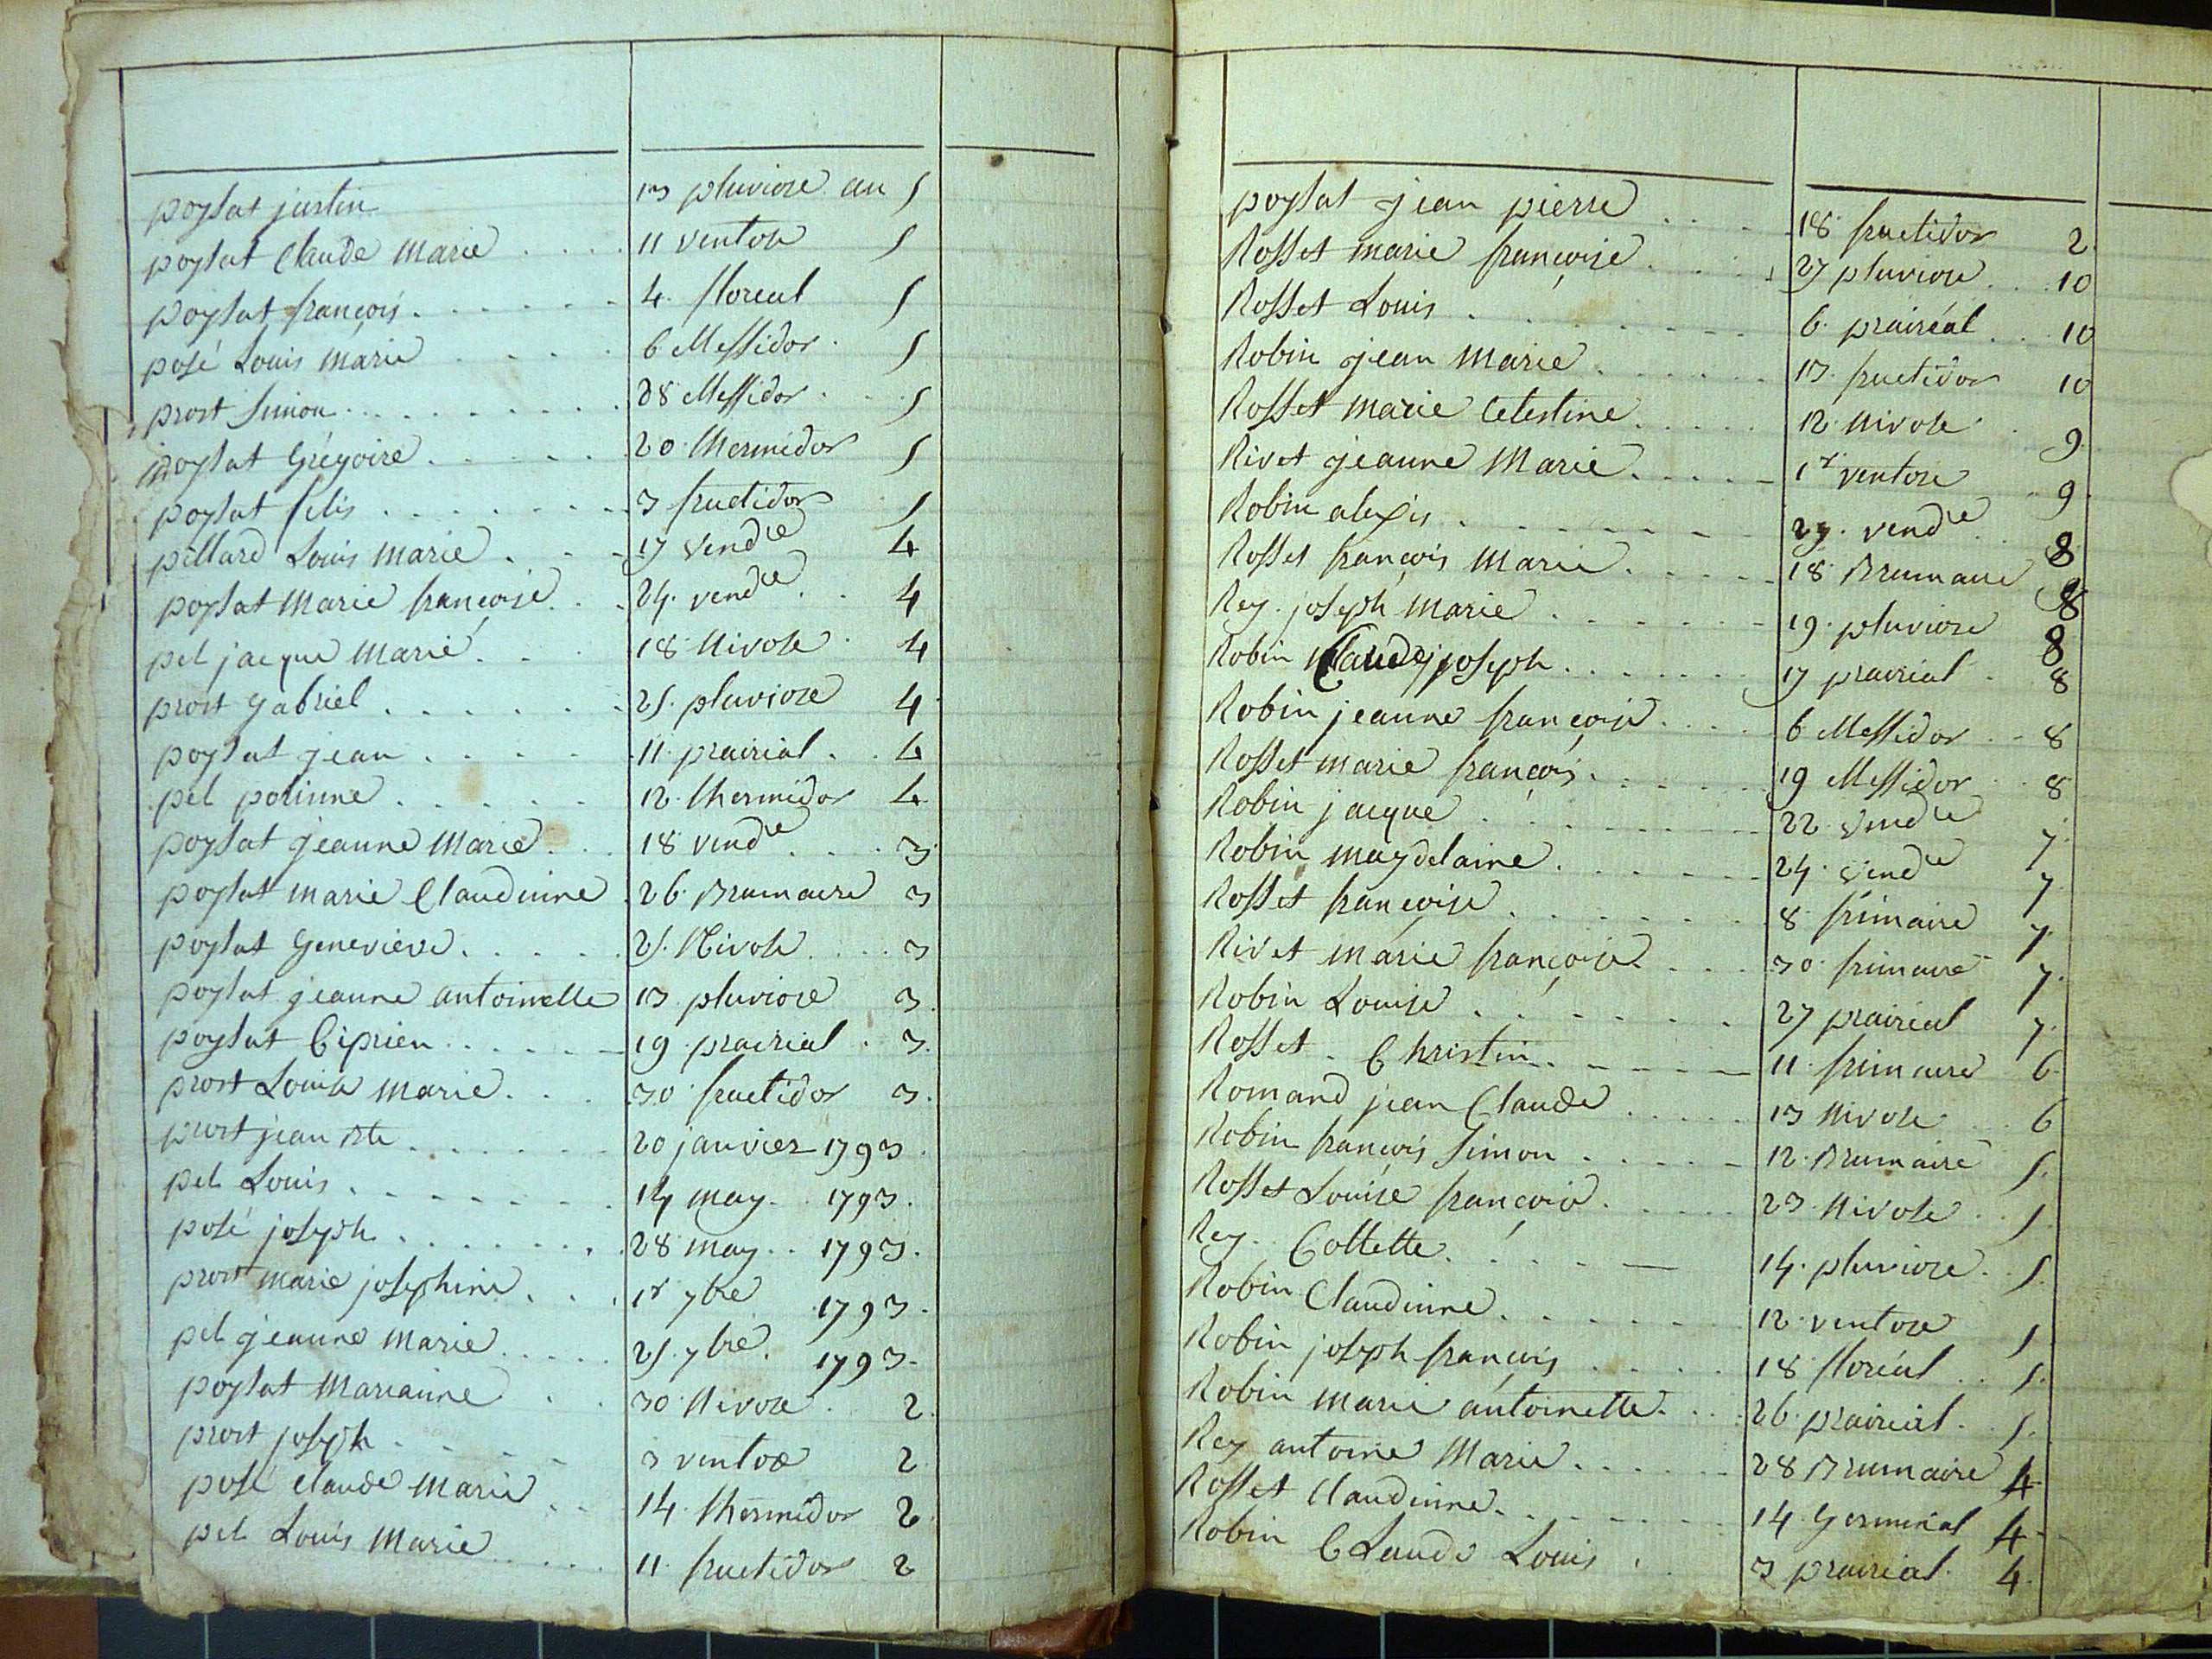 poysat justin 13 pluviose an 5
poysat Claude Marie 11 ventose 5
poysat françois 4 floreal 5
posé Louis Marie 6 Messidor 5
prost Simon 28 Messidor 5
poysat Grégoire 20 thermidor 5
poysat felis 3 fructidor 5
pillard Louis Marie 17 vend.re 4
poysat Marie françoise 24 vend.re 4
pel jacque Marie 18 Nivose 4
prost gabriel 25 pluviose 4
poysat jean 11 prairial 4
pel polinne 12 thermidor 4
poysat jeanne Marie 18 vend.re 3
poysat Marie Claudinne 26 Brumaire 3
poysat Genevieve 25 Nivose 3
poysat jeanne antoinette 13 pluviose 3
poysat Ciprien 19 prairial 3
prost Louise Marie 30 fructidor 3
prost jean Bte 20 janvier 1793
pel Louis 14 may 1793
posé joseph 28 may 1793
prost marie josephine 1r 7bre 1793
pel jeanne Marie 25 7bre 1793
poysat Marianne 30 Nivose 2
prost joseph 3 ventose 2
posé Claude Marie 14 thermidor 2
pel Louis Marie 11 fructidor 2
poysat jean pierre 18 fructidor 2
Rosset marie françoise 27 pluviose 10
Rosset Louis 6 prairéal 10
Robin jean Marie 13 fructidor 10
Rosset marie Celestine 12 Nivose 9
Rivet jeanne Marie 1r ventose 9
Robin alexis 29 vend.re 8
Rosset françois Marie 18 Brumaire 8
Rey joseph Marie 19 pluviose 8
Robin Claude joseph 17 prairial 8
Robin jeanne françoise 6 Messidor 8
Rosset marie françois 19 Messidor 8
Robin jacque 22 vend.re 7
Robin magdelaine 24 vend.re 7
Rosset françoise 8 frimaire 7
Rivet marie françoise 30 frimaire 7
Robin Louise 27 prairial 7
Rosset Christin 11 frimaire 6
Romand jean Claude 13 Nivose 6
Robin françois Simon 12 Brumaire 5
Rosset Louise françoise 23 Nivose 5
Rey Collette 14 pluviose 5
Robin Claudinne 12 ventose 5
Robin joseph françois 18 floréal 5
Robin marie antoinette 26 prairial 5
Rey antoine Marie 28 Brumaire 4
Rosset Claudinne 14 Germinal 4
Robin CLaude Louis 3 prairial 4